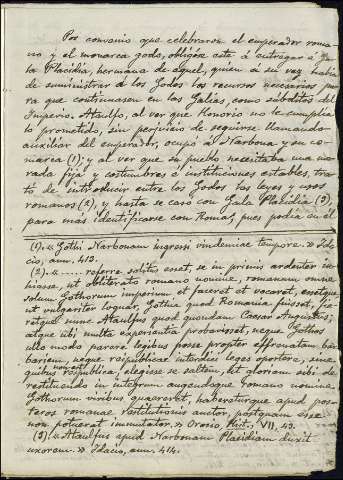 Por convenio que celebraron el emperador roma-
no y el monarca godo, obligóse este á entregar á Ga-
la Placidia, hermana de aquel, quien á su vez había
de suministrar á los Godos los recursos necesarios pa-
ra que continuasen en las Galias, como súbditos del
Imperio. Ataulfo, al ver que Honorio no le cumplía
lo prometido, sin perjuicio de seguirse llamando
auxiliar del emperador, ocupó á Narbona y su co-
marca (1); y al ver que su pueblo necesitaba una mo-
rada fija y costumbres é instituciones estables, tra-
tó de introducir entre los Godos las leyes y usos
romanos (2), y hasta se casó con Gala Placidia (3)
para más identificarse con Roma, pues podía en él
(1). «Gothi Narbonam ingressi vindemiae tempore.» Ida-
cio, ann. 413.
(2). «..... referre solitus esset, se in primis ardenter in-
hiasse, ut obliterato romano nomine, romanum omne
solum Gothorum imperium et faceret et vocaret, essetque
ut vulgariter loquar, Gothia quod Romania fuisset, fie-
retque nunc Ataulfus quod quondam Caesar Augustus;
atque ubi multa experientia probavisset, neque Gothos
ullo modo parere legibus posse propter effrenatam bar-
bariem, neque reipublicae interdici leges oportere, sine
quibus respublica non est respublica; elegisse se saltem, ut gloriam sibi de
restituendo in integrum augendoque romano nomine,
Gothorum viribus quaereret, habereturque apud pos-
teros romanae restitutionis auctor, postquam esse
non potuerat immutator.» Orosio, Hist., VII, 43.
(3). «Ataulfus apud Narbonam Placidiam duxit
uxorem.» Idacio, ann. 414.